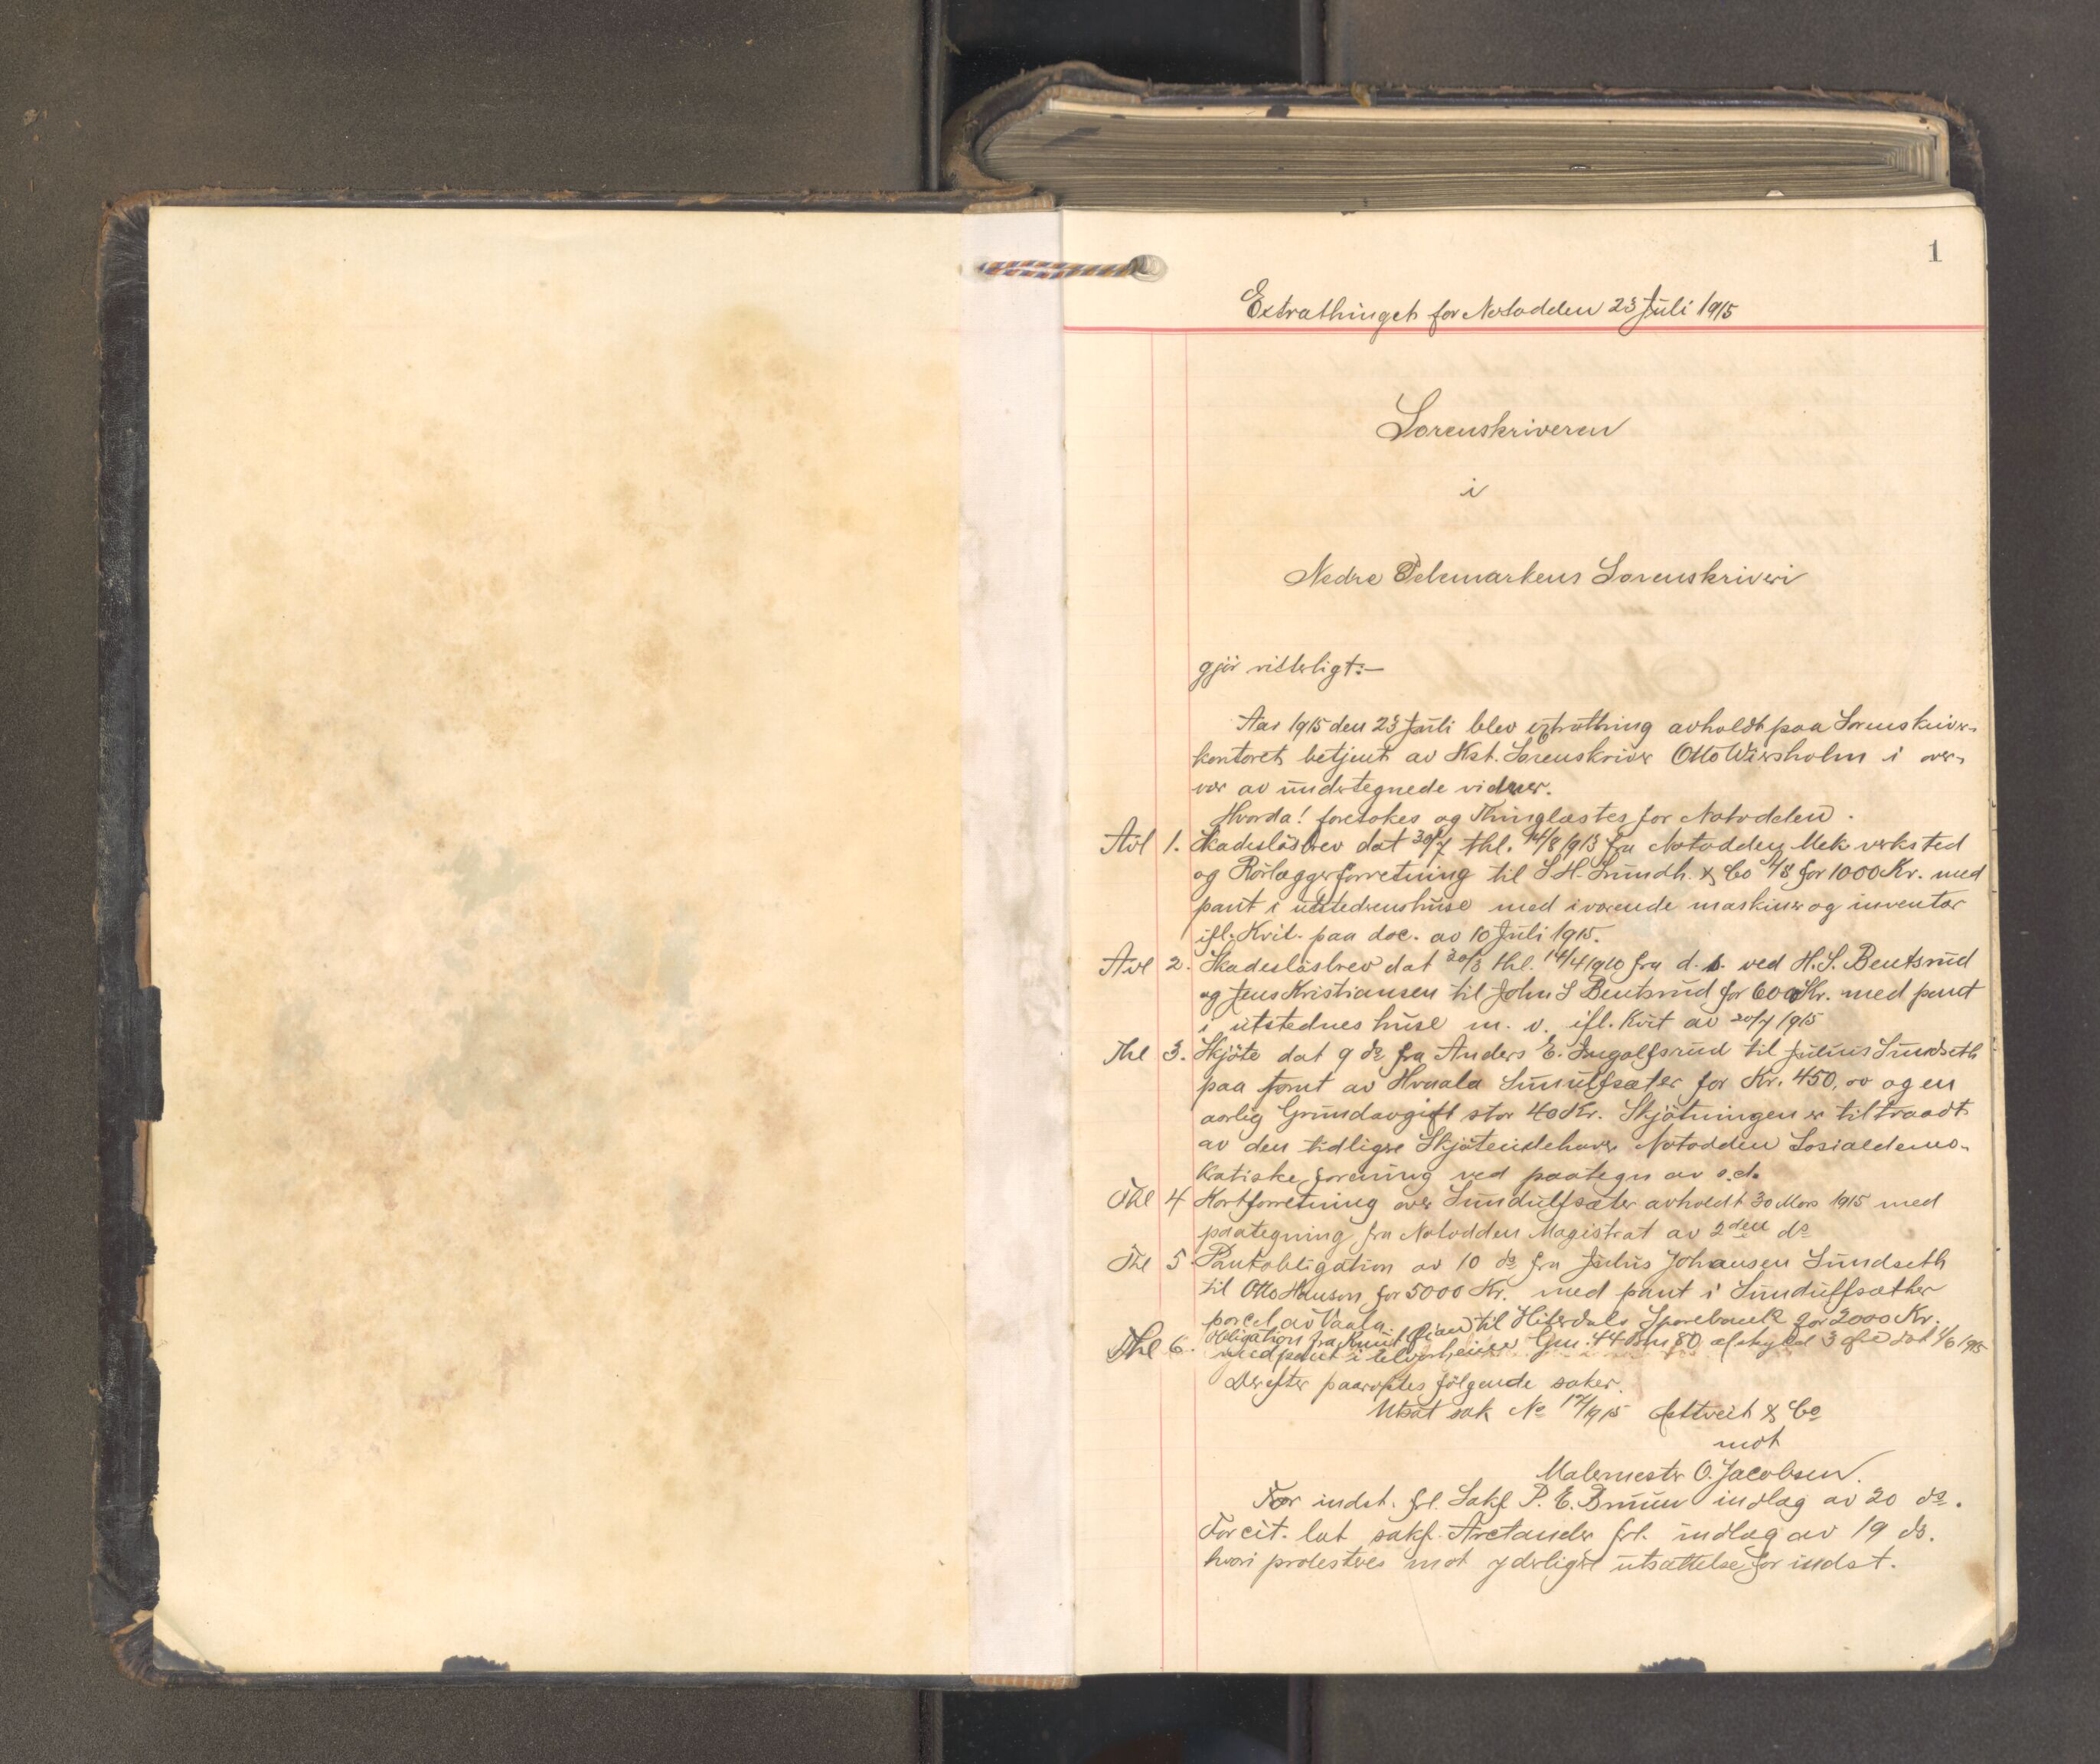 1
Extrathinget for Notodden 23 Juli 1915
Sorenskriveren
i
Nedre Telemarkens Sorenskriveri
gjør vitterligt:—
Aar 1915 den 23 Juli blev extrathing avholdt paa Sorenskriver-
kontoret betjent av Kst. Sorenskriver Otto Wiersholm i over-
vær av undertegnede vidner.
Hvorda! foretokes og Thinglæstes for Notodden.
Avl 1. Skadesløsbrev dat 30/7 thl. 14/8 1913 fra Notodden Mek verksted
og Rørlæggerforretning til S. H. Lundh & Co 4/8 for 1000 Kr. med
pant i utstederens huse med iværende maskiner og inventar
ifl. Kvit. paa doc. av 10 Juli 1915.
Avl 2. Skadesløsbrev dat 30/3 thl. 14/4 1910 fra d. s. ved H. S. Bentsrud
og Jens Kristiansen til John S Bentsrud for 600 Kr. med pant
i utstedernes huse m. v. ifl. Kvit av 20/7 1915
Thl 3. Skjøte dat 9 ds fra Anders E. Ingolfsrud til Julius Sundseth
paa tomt av Hvaala Sundulfsæter for Kr. 450,00 og en
aarlig Grundavgift stor 40 Kr. Skjøtningen er tiltraadt
av den tidligere Skjøteindehaver Notodden Sosialdemo-
kratiske forening ved paategn av s.d.
Thl 4 Kartforretning over Sundulfsæter avholdt 30 Mars 1915 med
paategning fra Notodden Magistrat av 2den ds
Thl 5. Pantobligation av 10 ds fra Julius Johansen Sundseth
til Otto Hanson for 5000 Kr. med pant i Sundulfsæther
parcel av Vaala.
Thl 6. Obligation fra Knut til Hiterdals Sparebank for 2000 Kr.
med pant i Gnr. 44 Bnr 80 af skyld 3 øre dat 1/6 1915
Derefter paaroptes følgende saker.
Utsat sak No 12/1915 & Co
mot
Malermester O. Jacobsen.
For indst. frl. Sakf P. E. Bruun indlæg av 20 ds.
For cit. lot sakf. Arctander frl. indlæg av 19 ds.
hvori protesteres mot yderligere utsættelse for indst.